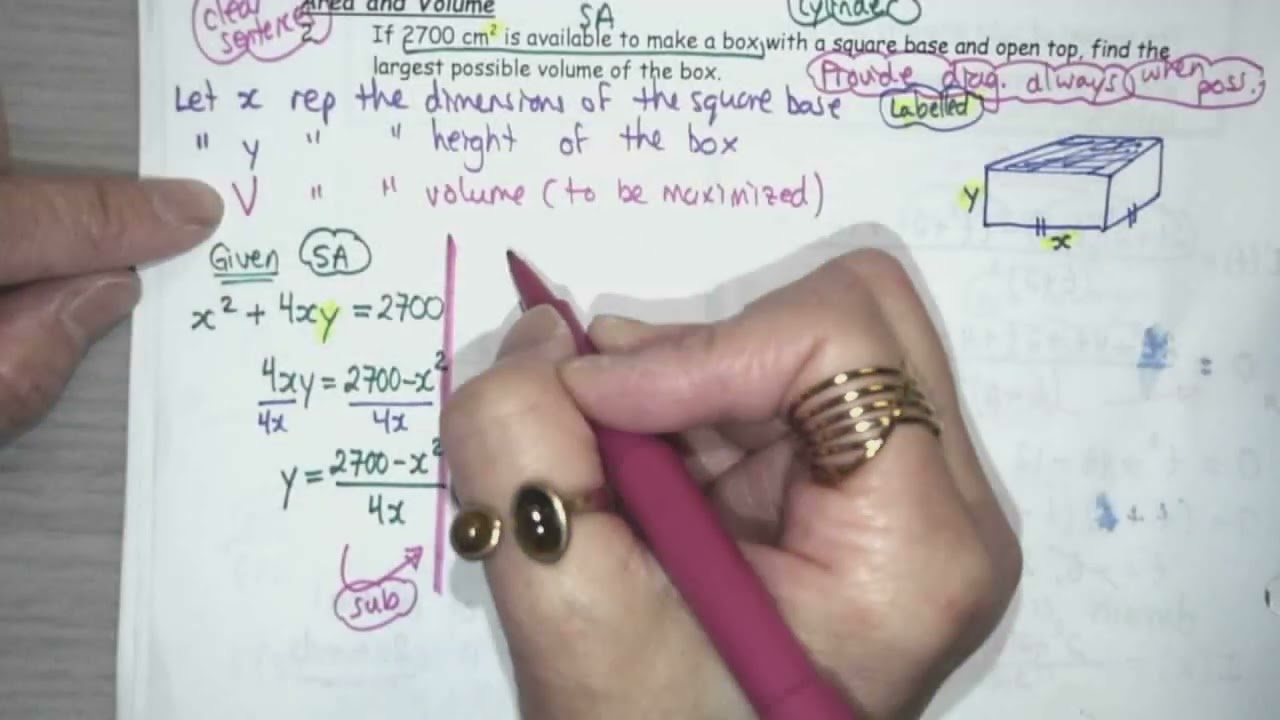 Area and Volume
clear sentences
SA
Cylinder
2 If 2700 cm² is available to make a box with a square base and open top, find the
largest possible volume of the box.
Provide diag. always when poss.
Let x rep the dimensions of the square base
Labelled
" y " " height of the box
V " " volume (to be maximized)
y
x
Given SA
x² + 4xy = 2700
4xy = 2700-x²
4x 4x
y = 2700-x²
4x
sub